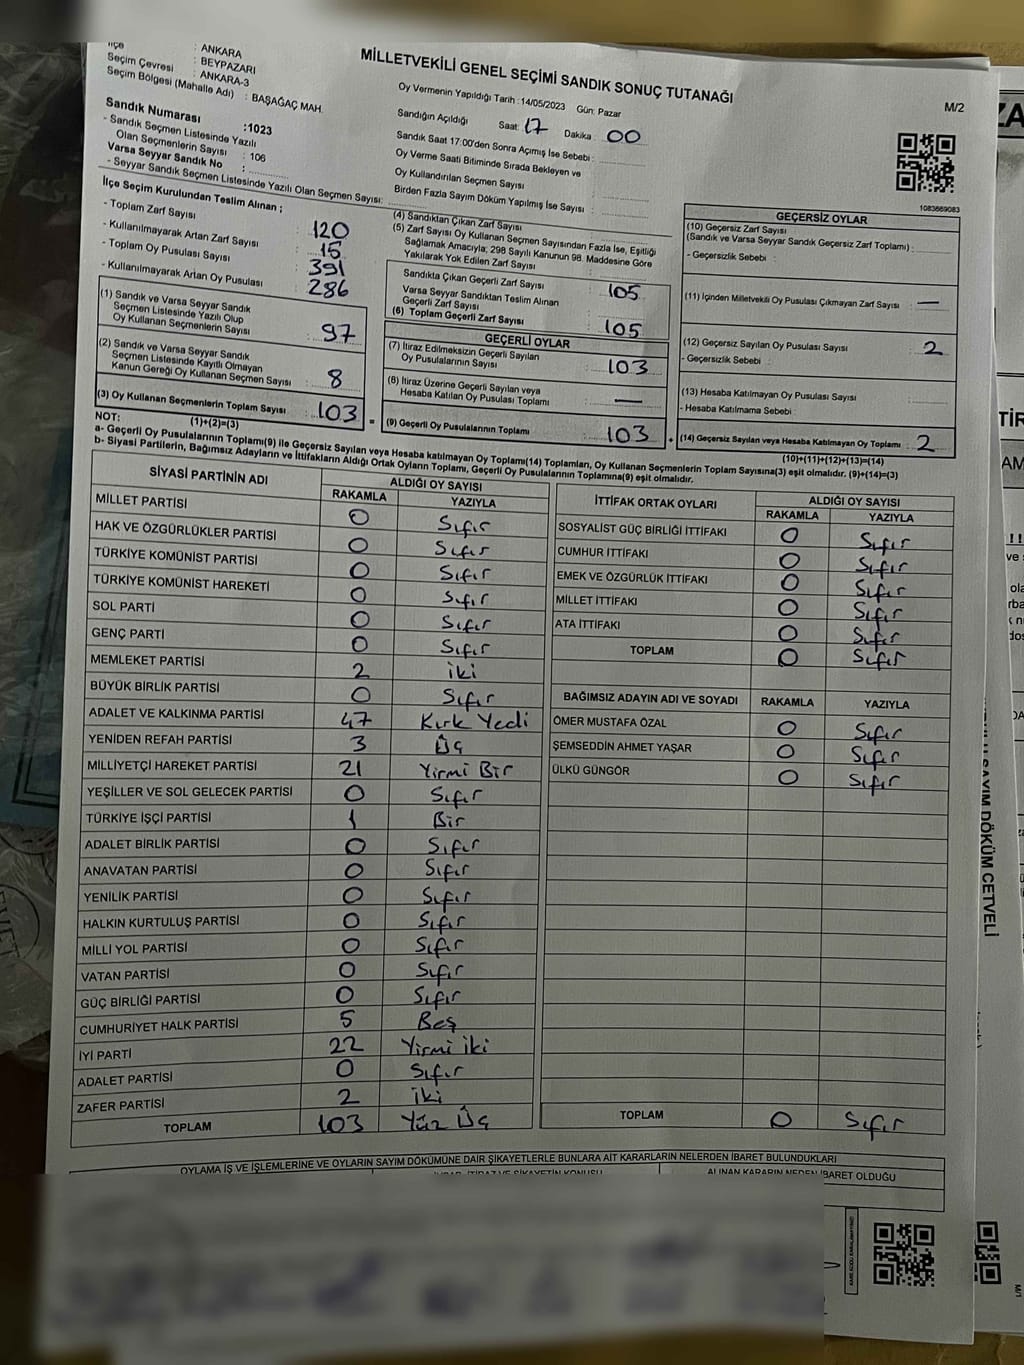 MİLLETVEKİLİ GENEL SEÇİMİ SANDIK SONUÇ TUTANAĞI
M/2
İlçe : ANKARA
Seçim Çevresi : BEYPAZARI
Seçim Bölgesi (Mahalle Adı) : ANKARA-3
: BAŞAĞAÇ MAH.
Sandık Numarası :1023
- Sandık Seçmen Listesinde Yazılı
Olan Seçmenlerin Sayısı : 106
Varsa Seyyar Sandık No :
- Seyyar Sandık Seçmen Listesinde Yazılı Olan Seçmen Sayısı:
Oy Vermenin Yapıldığı Tarih :14/05/2023 Gün: Pazar
Sandığın Açıldığı Saat: 17 Dakika : 00
Sandık Saat 17:00'den Sonra Açımış İse Sebebi :
Oy Verme Saati Bitiminde Sırada Bekleyen ve
Oy Kullandırılan Seçmen Sayısı :
Birden Fazla Sayım Döküm Yapılmış İse Sayısı :
1083669083
İlçe Seçim Kurulundan Teslim Alınan ;
- Toplam Zarf Sayısı : 120
- Kullanılmayarak Artan Zarf Sayısı : 15
- Toplam Oy Pusulası Sayısı : 391
- Kullanılmayarak Artan Oy Pusulası : 286
(1) Sandık ve Varsa Seyyar Sandık
Seçmen Listesinde Yazılı Olup
Oy Kullanan Seçmenlerin Sayısı : 97
(2) Sandık ve Varsa Seyyar Sandık
Seçmen Listesinde Kayıtlı Olmayan
Kanun Gereği Oy Kullanan Seçmen Sayısı : 8
(3) Oy Kullanan Seçmenlerin Toplam Sayısı : 103
(1)+(2)=(3)
(4) Sandıktan Çıkan Zarf Sayısı :
(5) Zarf Sayısı Oy Kullanan Seçmen Sayısından Fazla İse, Eşitliği
Sağlamak Amacıyla; 298 Sayılı Kanunun 98. Maddesine Göre
Yakılarak Yok Edilen Zarf Sayısı :
Sandıkta Çıkan Geçerli Zarf Sayısı : 105
Varsa Seyyar Sandıktan Teslim Alınan
Geçerli Zarf Sayısı :
(6) Toplam Geçerli Zarf Sayısı : 105
GEÇERLİ OYLAR
(7) İtiraz Edilmeksizin Geçerli Sayılan
Oy Pusulalarının Sayısı : 103
(8) İtiraz Üzerine Geçerli Sayılan veya
Hesaba Katılan Oy Pusulası Toplamı : —
= (9) Geçerli Oy Pusulalarının Toplamı : 103
GEÇERSİZ OYLAR
(10) Geçersiz Zarf Sayısı
(Sandık ve Varsa Seyyar Sandık Geçersiz Zarf Toplamı) :
- Geçersizlik Sebebi :
(11) İçinden Milletvekili Oy Pusulası Çıkmayan Zarf Sayısı : —
(12) Geçersiz Sayılan Oy Pusulası Sayısı : 2
- Geçersizlik Sebebi :
(13) Hesaba Katılmayan Oy Pusulası Sayısı :
- Hesaba Katılmama Sebebi :
+ (14) Geçersiz Sayılan veya Hesaba Katılmayan Oy Toplamı : 2
(10)+(11)+(12)+(13)=(14)
NOT:
a- Geçerli Oy Pusulalarının Toplamı(9) ile Geçersiz Sayılan veya Hesaba katılmayan Oy Toplamı(14) Toplamları, Oy Kullanan Seçmenlerin Toplam Sayısına(3) eşit olmalıdır. (9)+(14)=(3)
b- Siyasi Partilerin, Bağımsız Adayların ve İttifakların Aldığı Ortak Oyların Toplamı, Geçerli Oy Pusulalarının Toplamına(9) eşit olmalıdır.
SİYASİ PARTİNİN ADI ALDIĞI OY SAYISI
RAKAMLA YAZIYLA
MİLLET PARTİSİ 0 Sıfır
HAK VE ÖZGÜRLÜKLER PARTİSİ 0 Sıfır
TÜRKİYE KOMÜNİST PARTİSİ 0 Sıfır
TÜRKİYE KOMÜNİST HAREKETİ 0 Sıfır
SOL PARTİ 0 Sıfır
GENÇ PARTİ 0 Sıfır
MEMLEKET PARTİSİ 2 iki
BÜYÜK BİRLİK PARTİSİ 0 Sıfır
ADALET VE KALKINMA PARTİSİ 47 Kırk Yedi
YENİDEN REFAH PARTİSİ 3 Üç
MİLLİYETÇİ HAREKET PARTİSİ 21 Yirmi Bir
YEŞİLLER VE SOL GELECEK PARTİSİ 0 Sıfır
TÜRKİYE İŞÇİ PARTİSİ 1 Bir
ADALET BİRLİK PARTİSİ 0 Sıfır
ANAVATAN PARTİSİ 0 Sıfır
YENİLİK PARTİSİ 0 Sıfır
HALKIN KURTULUŞ PARTİSİ 0 Sıfır
MİLLİ YOL PARTİSİ 0 Sıfır
VATAN PARTİSİ 0 Sıfır
GÜÇ BİRLİĞİ PARTİSİ 0 Sıfır
CUMHURİYET HALK PARTİSİ 5 Beş
İYİ PARTİ 22 Yirmi iki
ADALET PARTİSİ 0 Sıfır
ZAFER PARTİSİ 2 iki
TOPLAM 103 Yüz Üç
İTTİFAK ORTAK OYLARI ALDIĞI OY SAYISI
RAKAMLA YAZIYLA
SOSYALİST GÜÇ BİRLİĞİ İTTİFAKI 0 Sıfır
CUMHUR İTTİFAKI 0 Sıfır
EMEK VE ÖZGÜRLÜK İTTİFAKI 0 Sıfır
MİLLET İTTİFAKI 0 Sıfır
ATA İTTİFAKI 0 Sıfır
TOPLAM 0 Sıfır
BAĞIMSIZ ADAYIN ADI VE SOYADI RAKAMLA YAZIYLA
ÖMER MUSTAFA ÖZAL 0 Sıfır
ŞEMSEDDİN AHMET YAŞAR 0 Sıfır
ÜLKÜ GÜNGÖR 0 Sıfır
TOPLAM 0 Sıfır
OYLAMA İŞ VE İŞLEMLERİNE VE OYLARIN SAYIM DÖKÜMÜNE DAİR ŞİKAYETLERLE BUNLARA AİT KARARLARIN NELERDEN İBARET BULUNDUKLARI
ALINAN KARARIN NEDEN İBARET OLDUĞU
SAYIM DÖKÜM CETVELİ
M/1